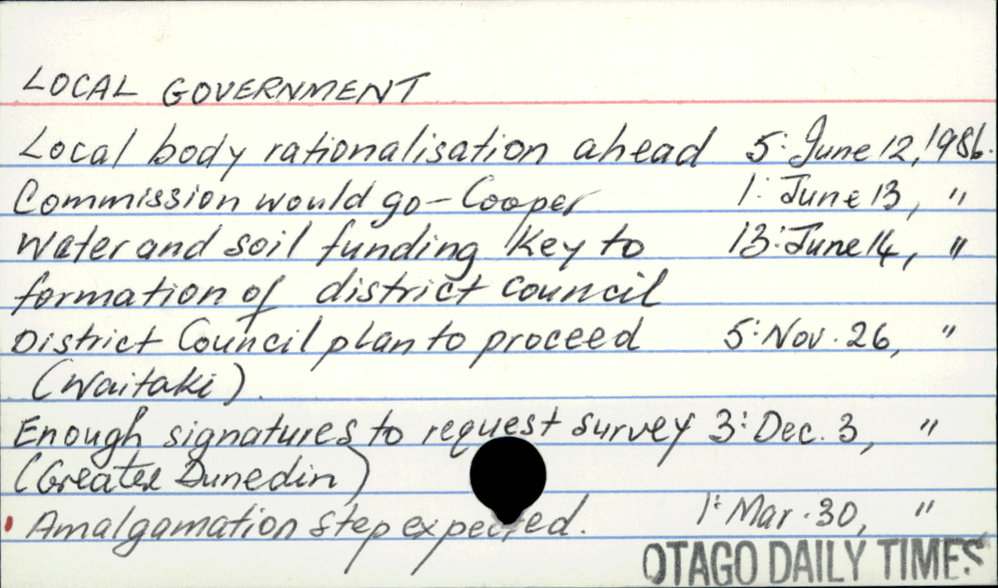 LOCAL GOVERNMENT
Local body rationalisation ahead 5: June 12, 1986.
Commission would go - Cooper 1: June 13, "
Water and soil funding Key to 13: June 14, "
formation of district council
District Council plan to proceed 5: Nov. 26, "
(Waitaki).
Enough signatures to request survey 3: Dec. 3, "
(Greater Dunedin)
Amalgamation step expected. 1: Mar. 30, "
OTAGO DAILY TIMES